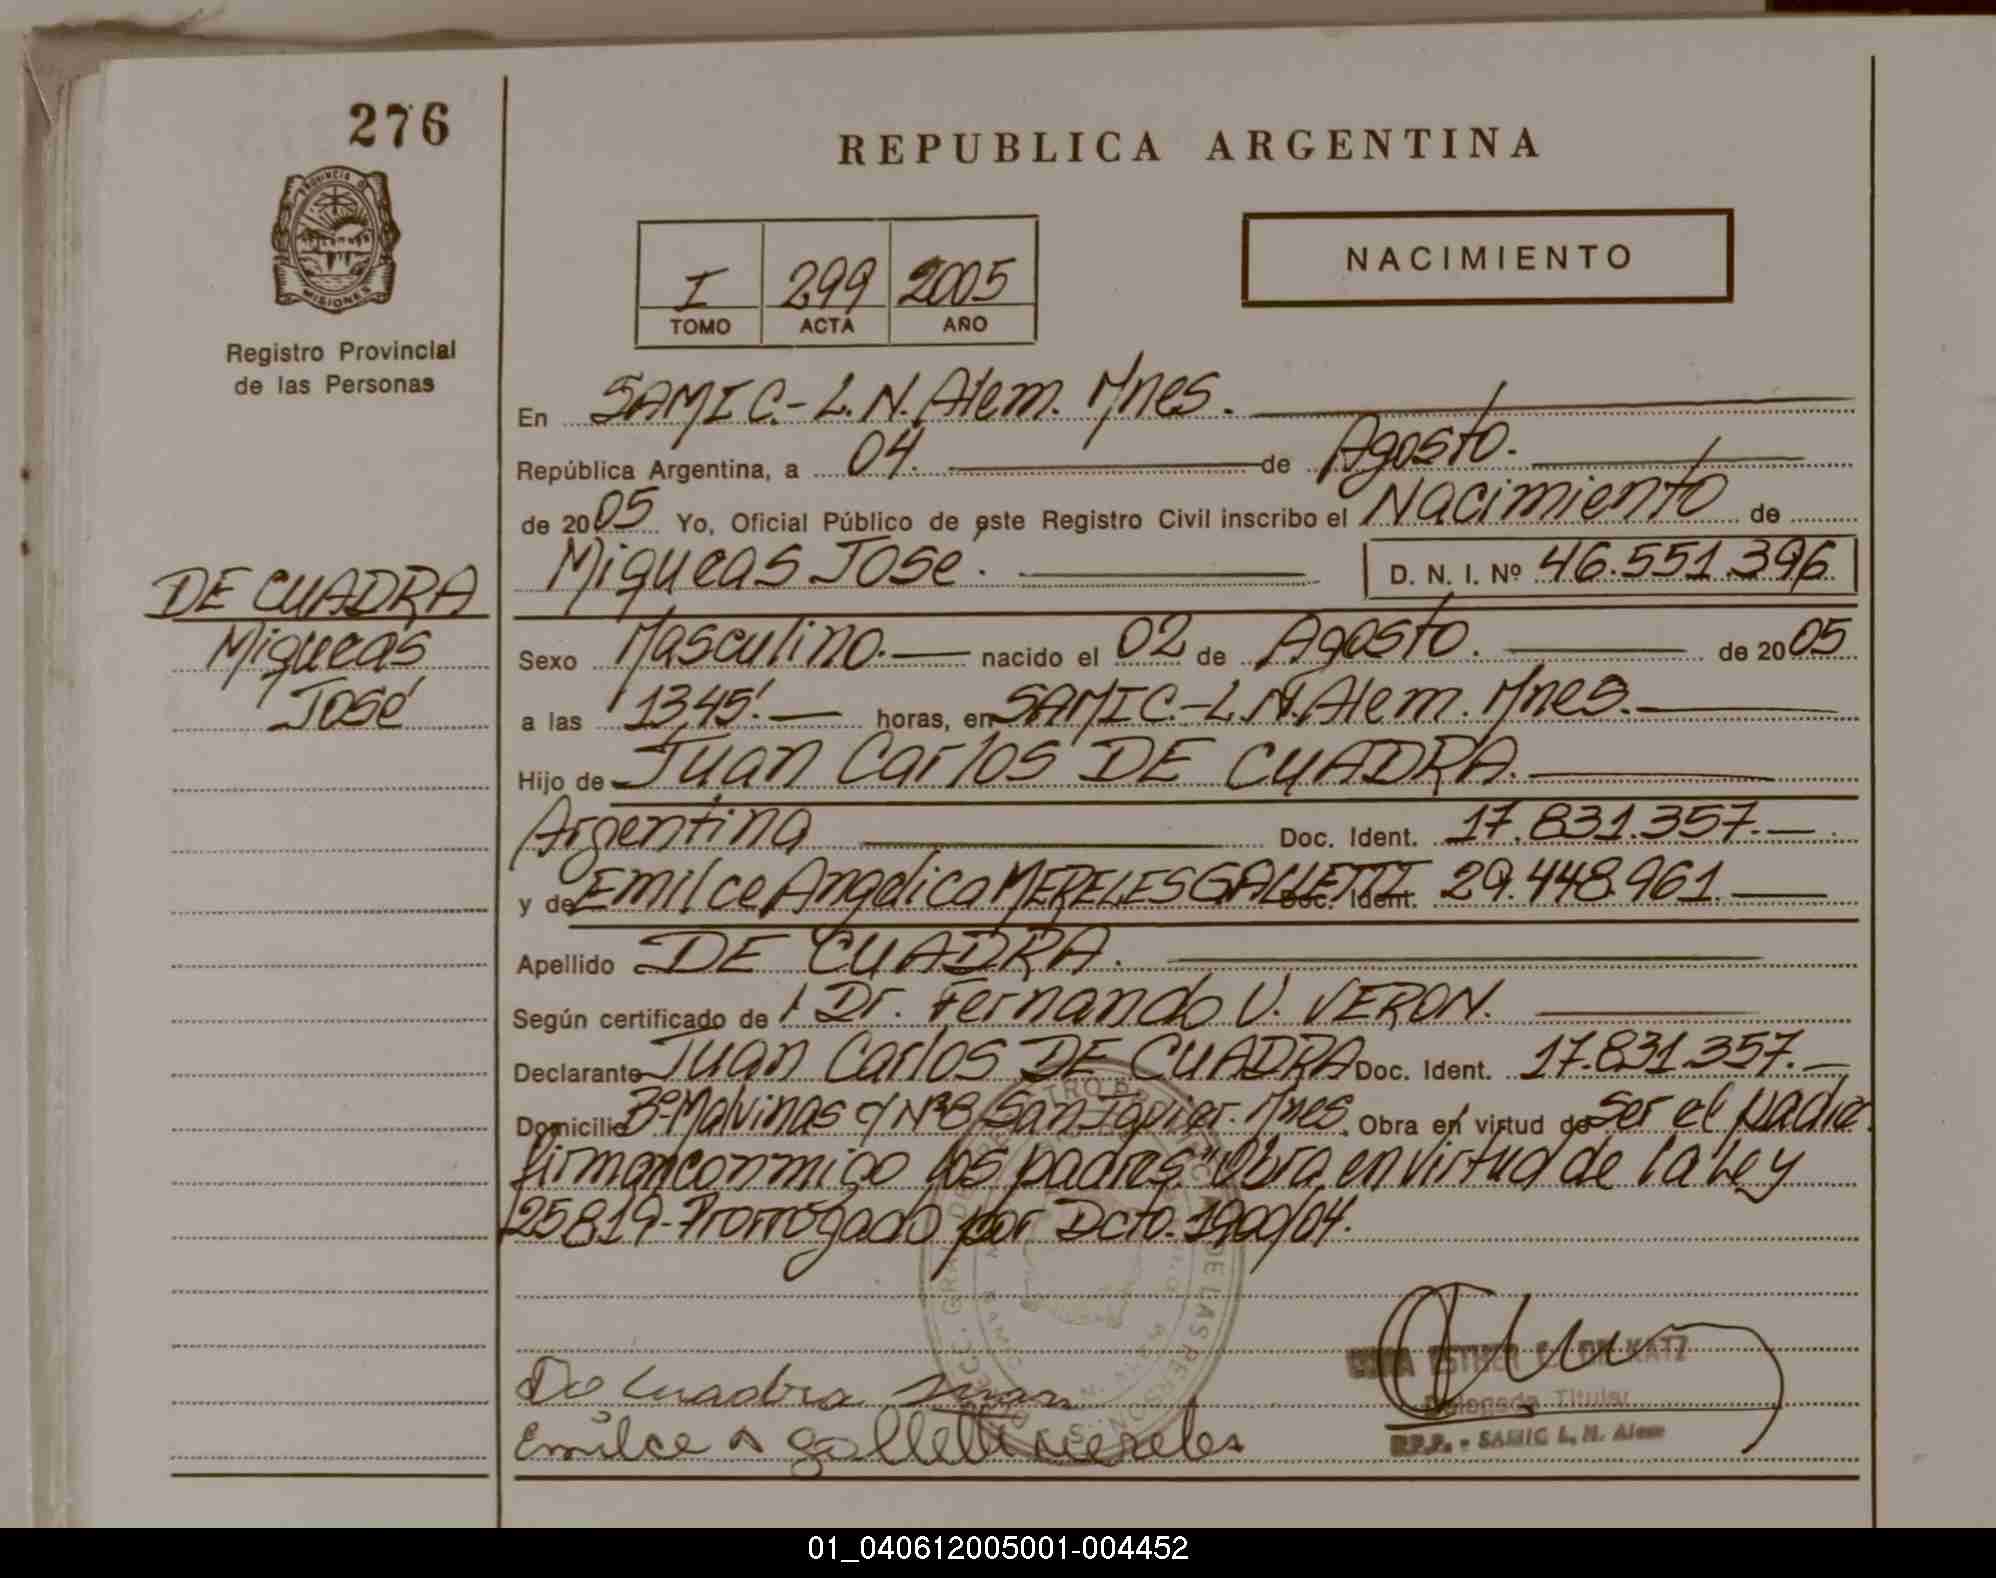 276
REPUBLICA ARGENTINA
PROVINCIA D
MISIONES
Registro Provincial
de las Personas
I 299 2005
TOMO ACTA AÑO
NACIMIENTO
En SAMIC.- L.N. Alem. Mnes.
República Argentina, a 04. de Agosto.
de 2005 Yo, Oficial Público de este Registro Civil inscribo el Nacimiento de
Miqueas Jose. D. N. I. Nº 46.551.396
DE CUADRA
Miqueas
José
Sexo Masculino.- nacido el 02 de Agosto. de 2005
a las 13,45'.- horas, en SAMIC.-L.N. Alem. Mnes.-
Hijo de Juan Carlos DE CUADRA.
Argentina Doc. Ident. 17.831.357.-
y de Emilce Angelica MERELES GALLETTI Doc. Ident. 29.448.961.-
Apellido DE CUADRA.
Según certificado de Dr. Fernando V. VERON.
Declarante Juan Carlos DE CUADRA Doc. Ident. 17.831.357.-
Domicilio Bº Malvinas San Javier. Mnes. Obra en virtud de ser el padre.
firman conmigo los padres "Obra en virtud de la Ley
25819-Prorrogado por Dcto. 1900/04.
De Cuadra Juan
Emilce A galletti mereles
ESTHER DE KATZ
Delegada Titular
R.P.P. - SAMIC L. N. Alem
01_040612005001-004452